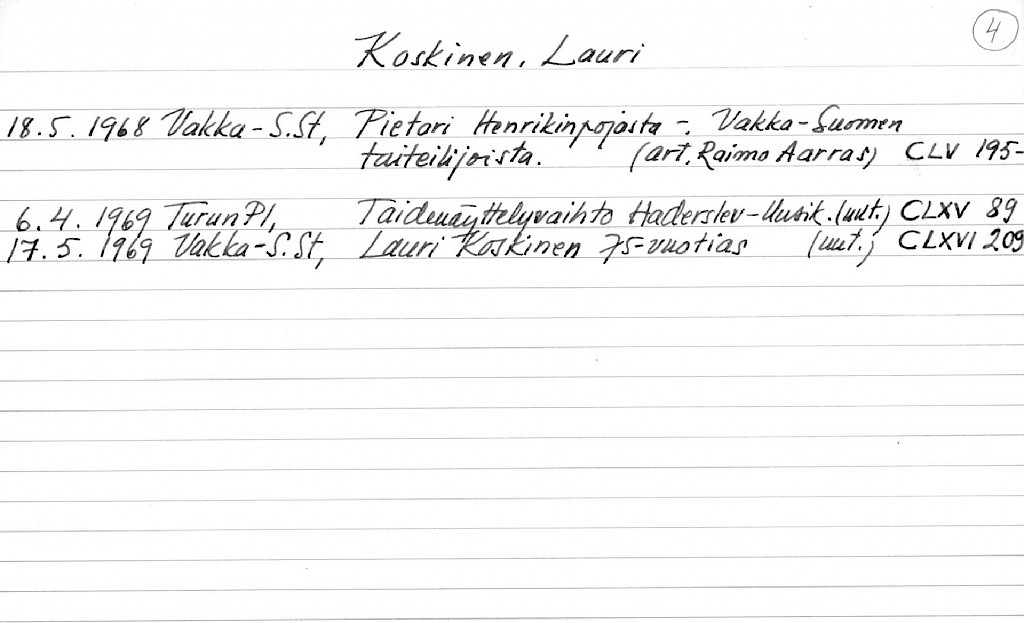 4
Koskinen, Lauri
18.5. 1968 Vakka-S.St, Pietari Henrikinpojasta -. Vakka-Suomen
taiteilijoista. (art. Raimo Aarras) CLV 195-
6.4. 1969 Turun Pl, Taidenäyttelyvaihto Haderslev-Uusik. (uut.) CLXV 89
17.5. 1969 Vakka-S.St, Lauri Koskinen 75-vuotias (uut.) CLXVI 209